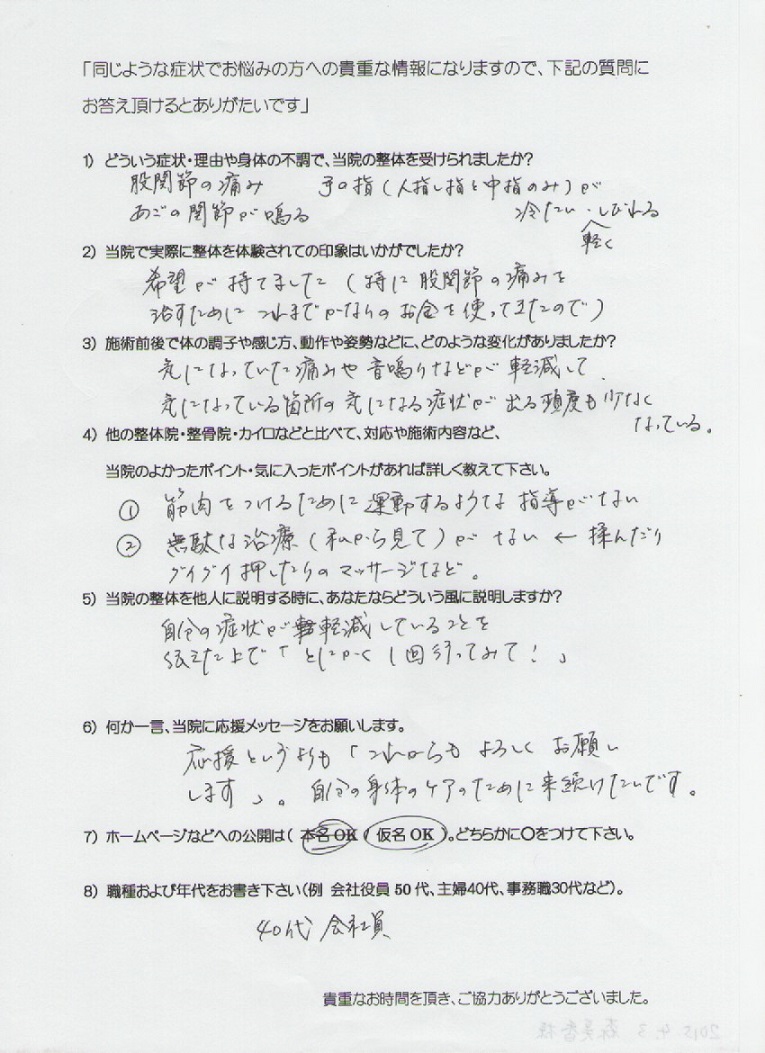 「同じような症状でお悩みの方への貴重な情報になりますので、下記の質問に
お答え頂けるとありがたいです」
1) どういう症状・理由や身体の不調で、当院の整体を受けられましたか?
股関節の痛み 手の指(人指し指と中指のみ)が
あごの関節が鳴る 冷たい・しびれる
軽く
2) 当院で実際に整体を体験されての印象はいかがでしたか?
希望が持てました(特に股関節の痛みを
治すためにこれまでかなりのお金を使ってきたので)
3) 施術前後で体の調子や感じ方、動作や姿勢などに、どのような変化がありましたか?
気になっていた痛みや音鳴りなどが軽減して、
気になっている箇所の気になる症状が出る頻度も少なく
なっている。
4) 他の整体院・整骨院・カイロなどと比べて、対応や施術内容など、
当院のよかったポイント・気に入ったポイントがあれば詳しく教えて下さい。
① 筋肉をつけるために運動するような指導がない
② 無駄な治療(私から見て)がない ← 揉んだり
グイグイ押したりのマッサージなど。
5) 当院の整体を他人に説明する時に、あなたならどういう風に説明しますか?
自分の症状が軽減していることを
伝えた上で「とにかく1回行ってみて!」
6) 何か一言、当院に応援メッセージをお願いします。
応援というよりも「これからもよろしくお願い
します」。自分の身体のケアのために来続けたいです。
7) ホームページなどへの公開は( 本名OK / 仮名OK )。どちらかに○をつけて下さい。
8) 職種および年代をお書き下さい(例 会社役員50代、主婦40代、事務職30代など)。
40代 会社員
貴重なお時間を頂き、ご協力ありがとうございました。